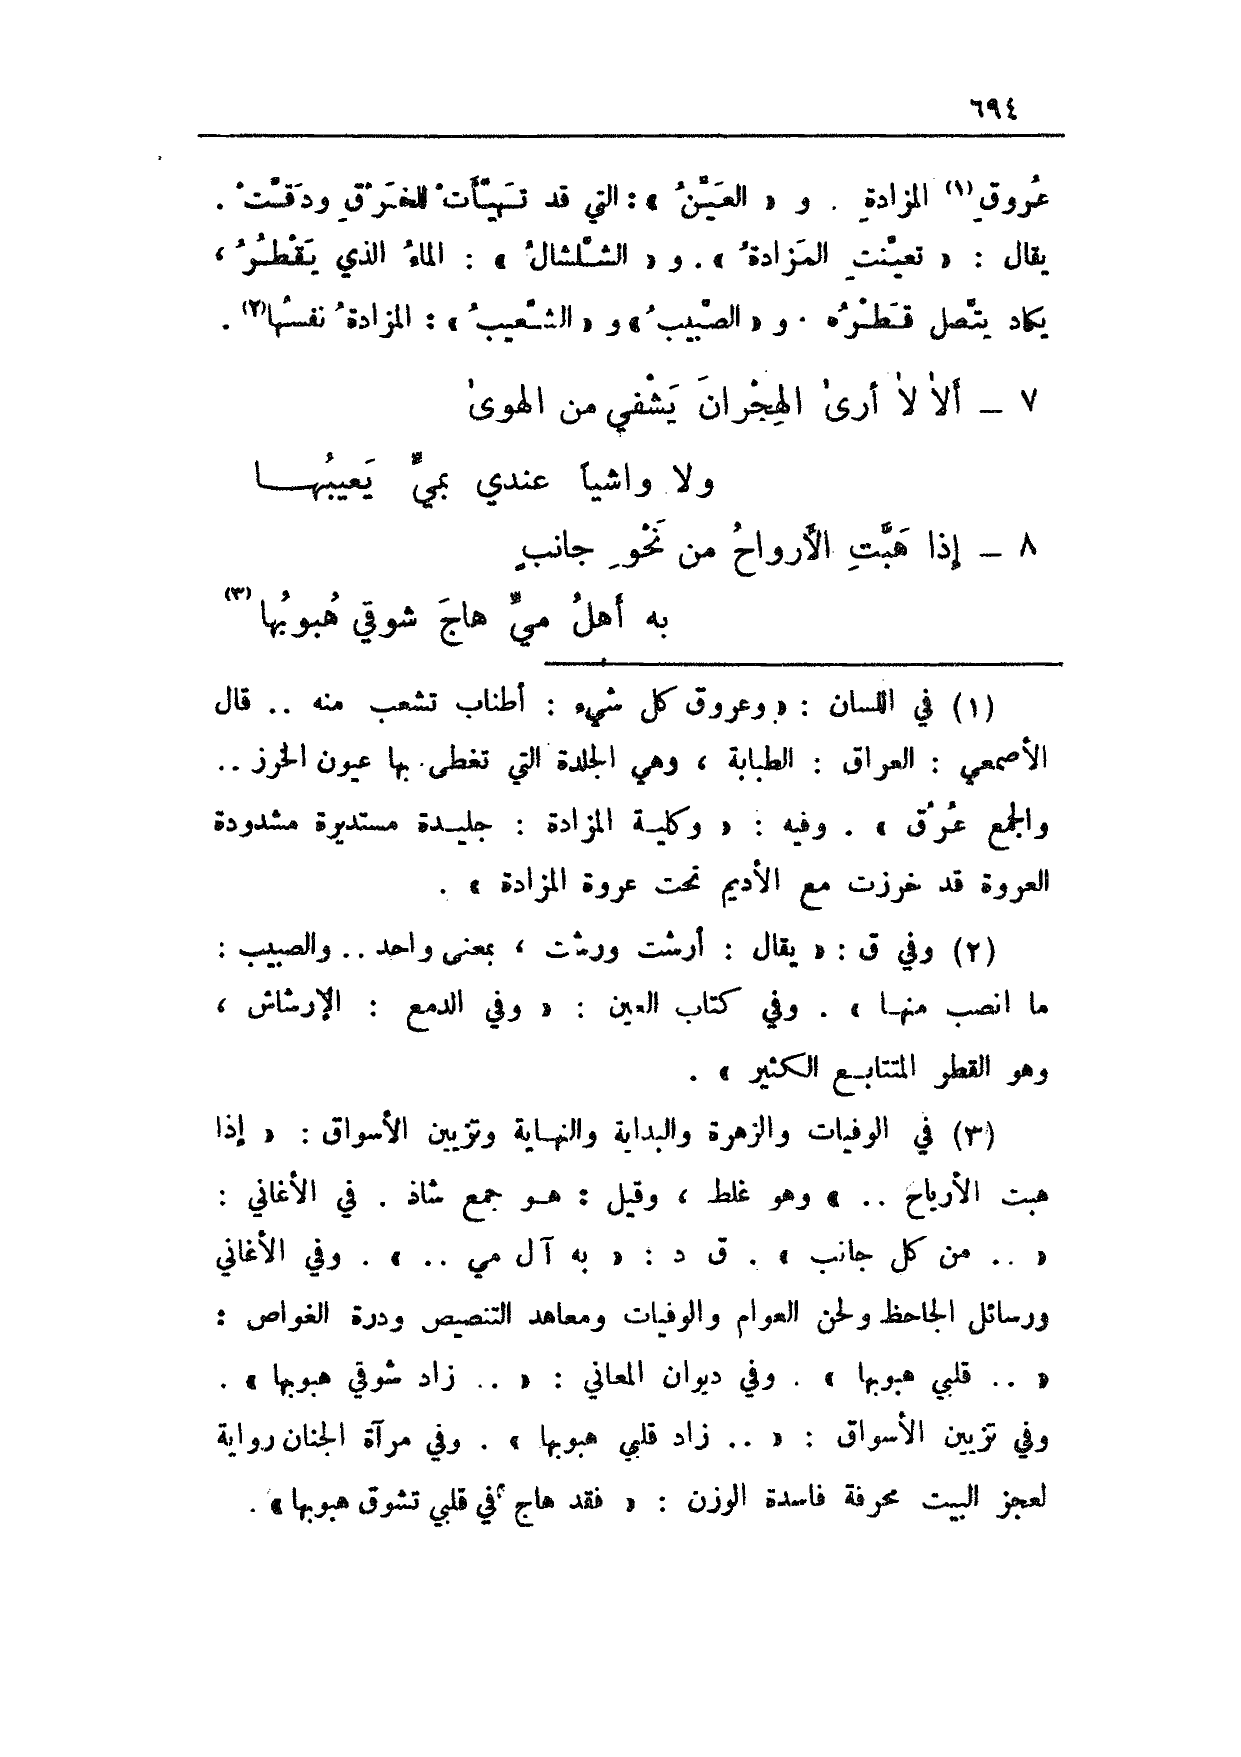 ٦٩٤
عُروقِ(١) المزادةِ . و « العَيَّنُ » : التي قد تَهَيَّأتْ للخَرْقِ ودَقَّتْ .
يقال : « تعيَّنتِ المَزادةُ » . و « الشَّلْشالُ » : الماءُ الذي يَقْطُرُ ،
يكاد يتَّصل قَطْرُه . و « الصَّبِيبُ » و « الشَّعِيبُ » : المزادةُ نفسُها(٢) .
٧ ــ أَلاٰ لاٰ أرىٰ الهِجْرانَ يَشْفي من الهوىٰ
ولا واشياً عندي بميٍّ يَعيبُهـــا
٨ ــ إذا هَبَّتِ الأَرواحُ من نَحْوِ جانبٍ
به أَهلُ ميٍّ هاجَ شوقي هُبوبُها(٣)
(١) في اللسان : « وعروق كل شيء : أطناب تشعب منه .. قال
الأصمعي : العراق : الطبابة ، وهي الجلدة التي تغطى بها عيون الخرز ..
والجمع عُرُق » . وفيه : « وكليـة المزادة : جليـدة مستديرة مشدودة
العروة قد خرزت مع الأديم تحت عروة المزادة » .
(٢) وفي ق : « يقال : أرشت ورشت ، بمعنى واحد .. والصبيب :
ما انصب منهـا » . وفي كتاب العين : « وفي الدمع : الإرشاش ،
وهو القطر المتتابـع الكثير » .
(٣) في الوفيات والزهرة والبداية والنهـاية وتزيين الأسواق : « إذا
هبت الأرياح .. » وهو غلط ، وقيل : هـو جمع شاذ . في الأغاني :
« .. من كل جانب » . ق د : « به آل مي .. » . وفي الأغاني
ورسائل الجاحظ ولحن العوام والوفيات ومعاهد التنصيص ودرة الغواص :
« .. قلبي هبوبها » . وفي ديوان المعاني : « .. زاد شوقي هبوبها » .
وفي تزيين الأسواق : « .. زاد قلبي هبوبها » . وفي مرآة الجنان رواية
لعجز البيت محرفة فاسدة الوزن : « فقد هاج في قلبي تشوق هبوبها » .